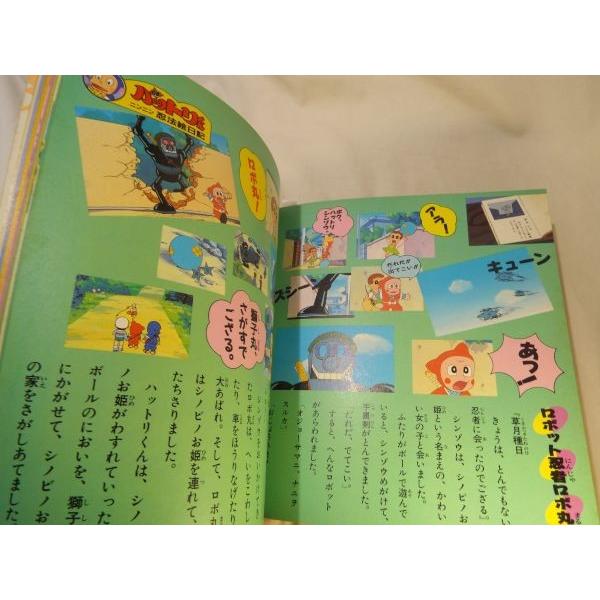 ロボット忍者ロボ丸
にんじゃ
まる
『草月種日
きょうは、とんでもない
忍者に会ったのでござる』。
シンゾウは、シノビノお
姫という名まえの、かわい
い女の子と会いました。
ふたりがボールで遊んで
いると、シンゾウめがけて、
手裏剣がとんできました。
「だれだ、でてこい」。
すると、へんなロボット
があらわれました。
「オジョーサマニ、ナニヲ
スルカ」。
アラー
ボク、
ハットリ
シンゾウ。
だれだか
出てこいっ
キューン
スシーン
あっ!
ハットリくん
ニンニン 忍法絵日記
ロボ丸!
獅子丸、
さがすで
ござる。
たロボ丸は、へいをこわし
たり、車をほうりなげたり
大あばれ。そして、ロボ丸
はシノビノお姫を連れて、
たちさりました。
ハットリくんは、シノ
ノお姫がわすれていった
ボールのにおいを、獅子
にかがせて、シノビノお
の家をさがしあてました。